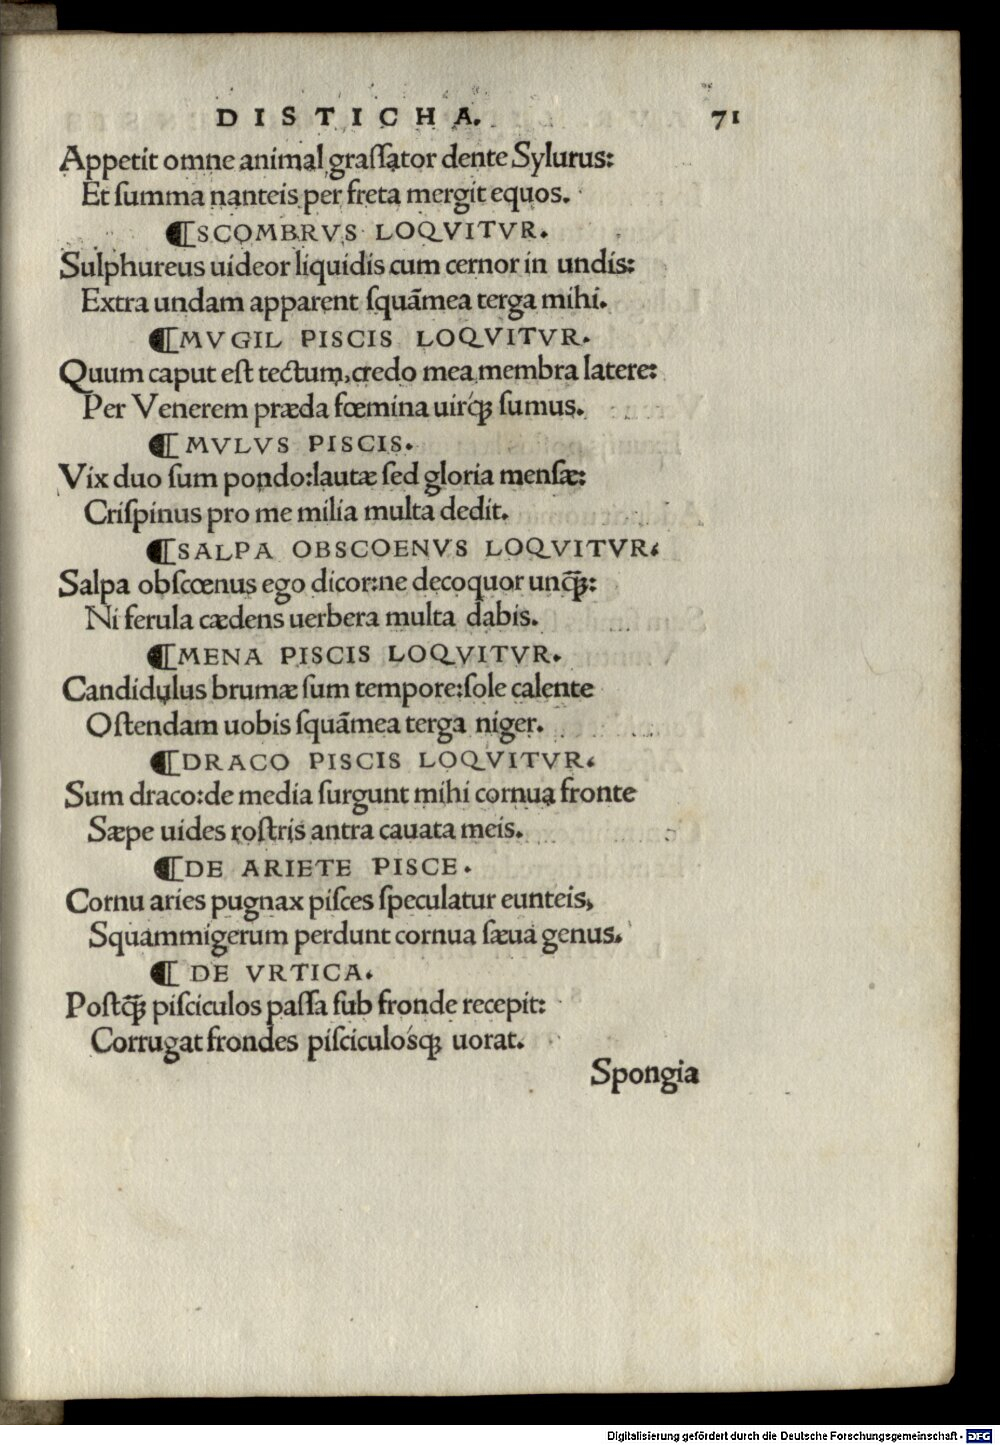 DISTICHA. 71
Appetit omne animal graſſator dente Sylurus:
Et ſumma nanteis per freta mergit equos.
¶SCOMBRVS LOQVITVR.
Sulphureus uideor liquidis cum cernor in undis:
Extra undam apparent ſquãmea terga mihi.
¶MVGIL PISCIS LOQVITVR.
Quum caput eſt tectum, credo mea membra latere:
Per Venerem præda fœmina uirq́ꝫ ſumus.
¶MVLVS PISCIS.
Vix duo ſum pondo: lautæ ſed gloria menſæ:
Criſpinus pro me milia multa dedit.
¶SALPA OBSCOENVS LOQVITVR.
Salpa obſcœnus ego dicor: ne decoquor unq̃ꝫ:
Ni ferula cædens uerbera multa dabis.
¶MENA PISCIS LOQVITVR.
Candidulus brumæ ſum tempore: ſole calente
Oſtendam uobis ſquãmea terga niger.
¶DRACO PISCIS LOQVITVR.
Sum draco: de media ſurgunt mihi cornua fronte
Sæpe uides roſtris antra cauata meis.
¶DE ARIETE PISCE.
Cornu aries pugnax piſces ſpeculatur eunteis,
Squammigerum perdunt cornua ſæua genus.
¶ DE VRTICA.
Poſtq̃ꝫ piſciculos paſſa ſub fronde recepit:
Corrugat frondes piſciculóſqꝫ uorat.
Spongia
Digitalisierung gefördert durch die Deutsche Forschungsgemeinschaft - DFG